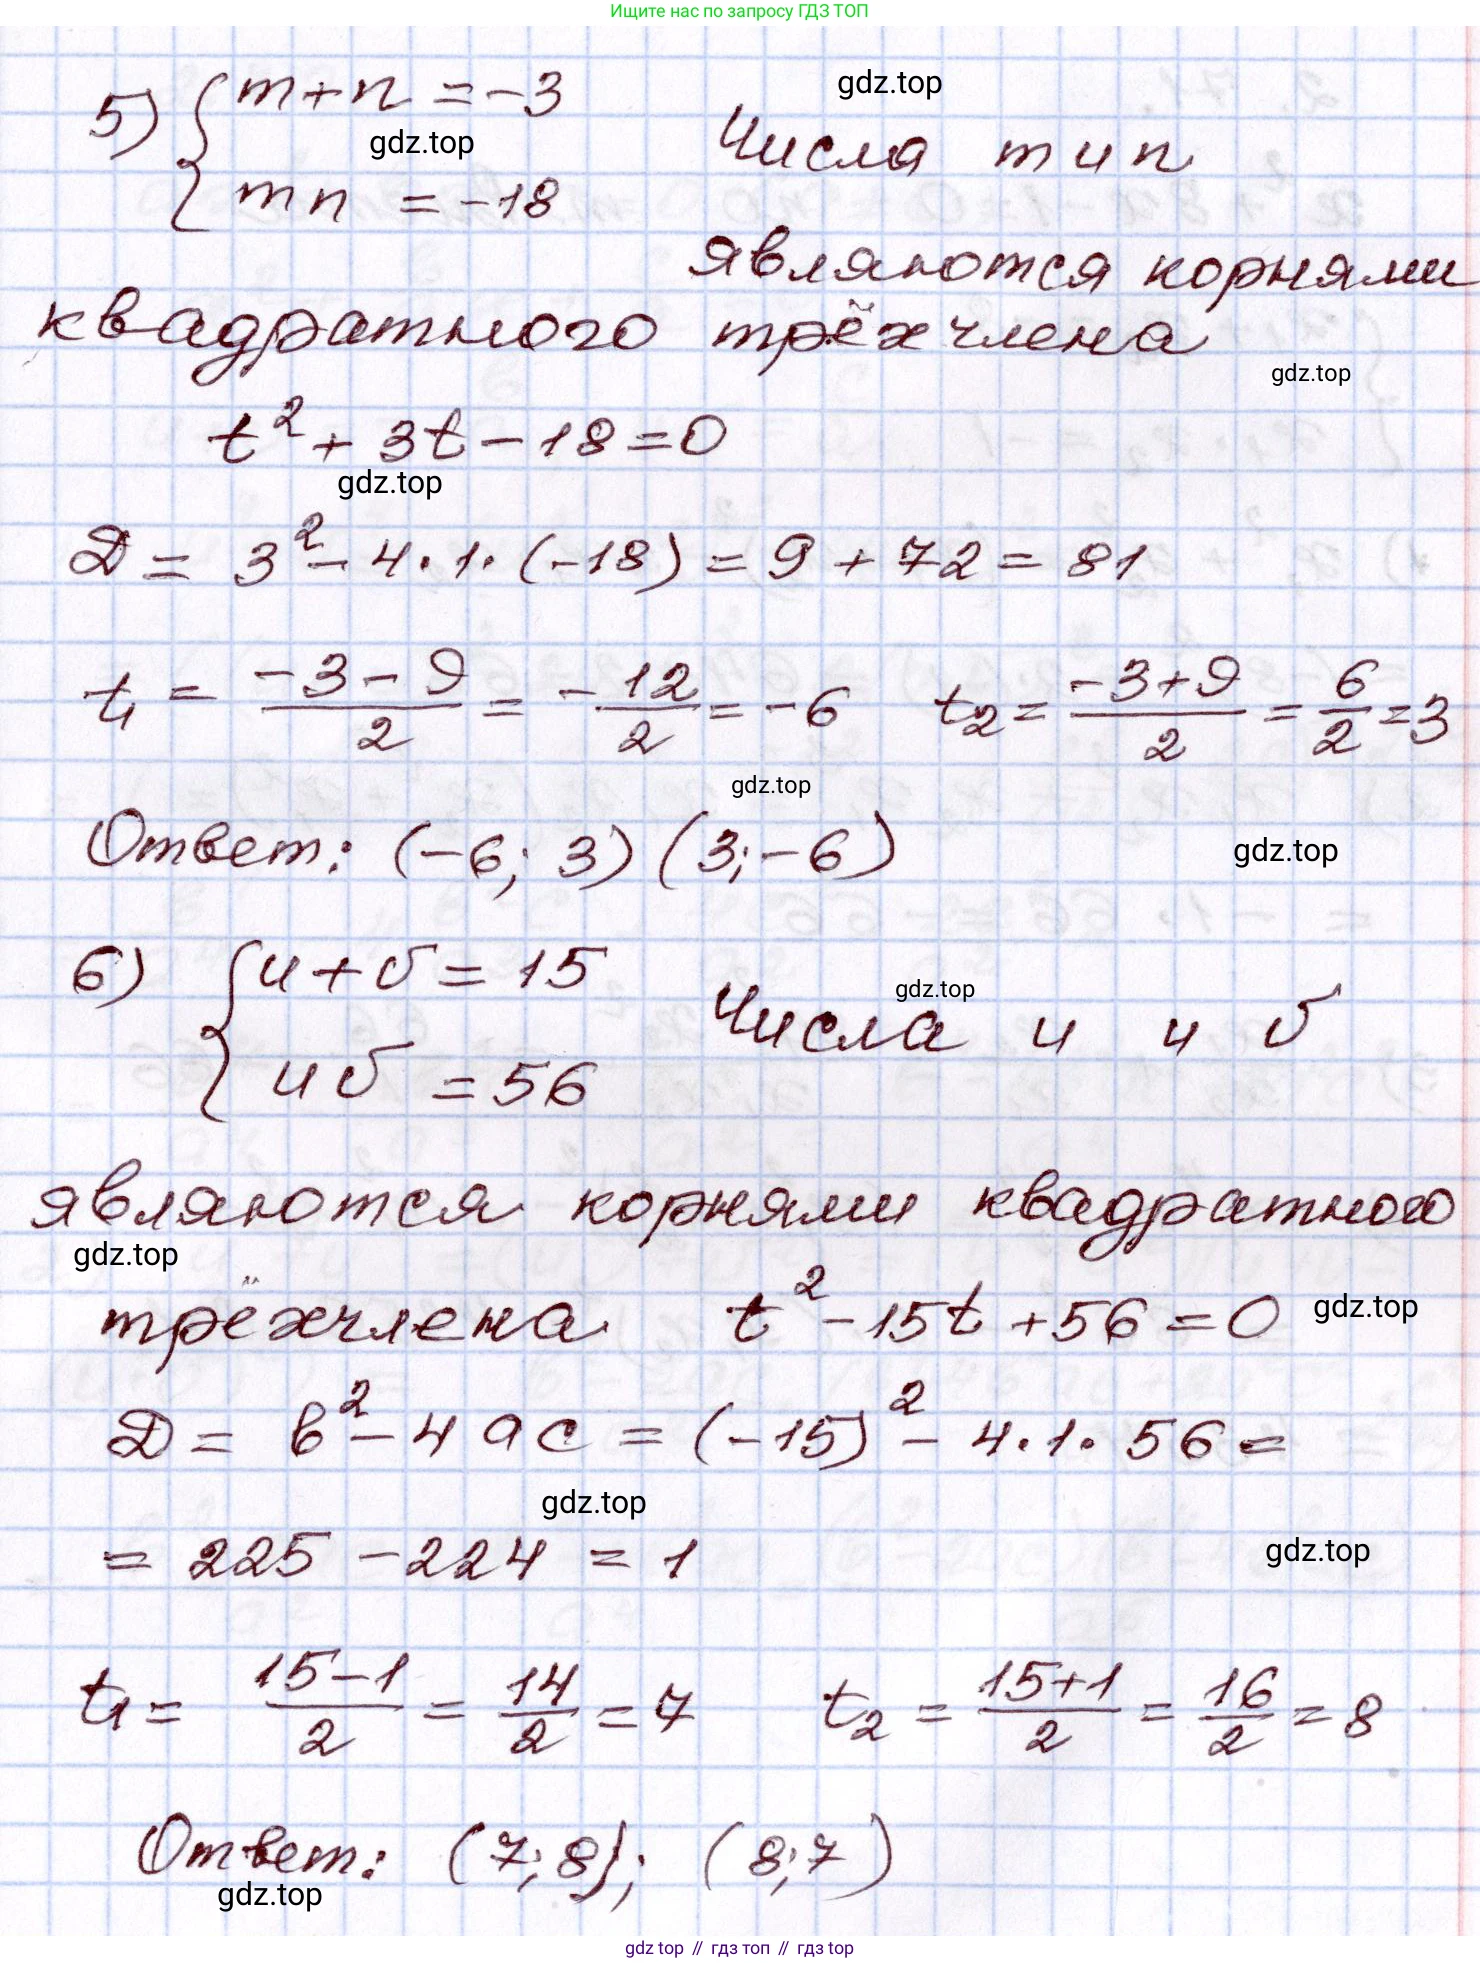 Ищите нас по запросу ГДЗ ТОП
gdz.top
5) { m + n = -3
gdz.top
mn = -18
Числа m и n
являются корнями
квадратного трёхчлена
gdz.top
t² + 3t - 18 = 0
gdz.top
D = 3² - 4·1·(-18) = 9 + 72 = 81
t₁ = (-3 - 9)/2 = -12/2 = -6 t₂ = (-3+9)/2 = 6/2 = 3
gdz.top
Ответ: (-6; 3) (3; -6)
gdz.top
6) { u + v = 15
uv = 56
gdz.top
Числа u и v
являются корнями квадратного
gdz.top
трёхчлена t² - 15t + 56 = 0
gdz.top
D = b² - 4ac = (-15)² - 4·1·56 =
gdz.top
= 225 - 224 = 1
gdz.top
t₁ = (15-1)/2 = 14/2 = 7 t₂ = (15+1)/2 = 16/2 = 8
Ответ: (7; 8); (8; 7)
gdz.top
gdz top // гдз топ // gdz top